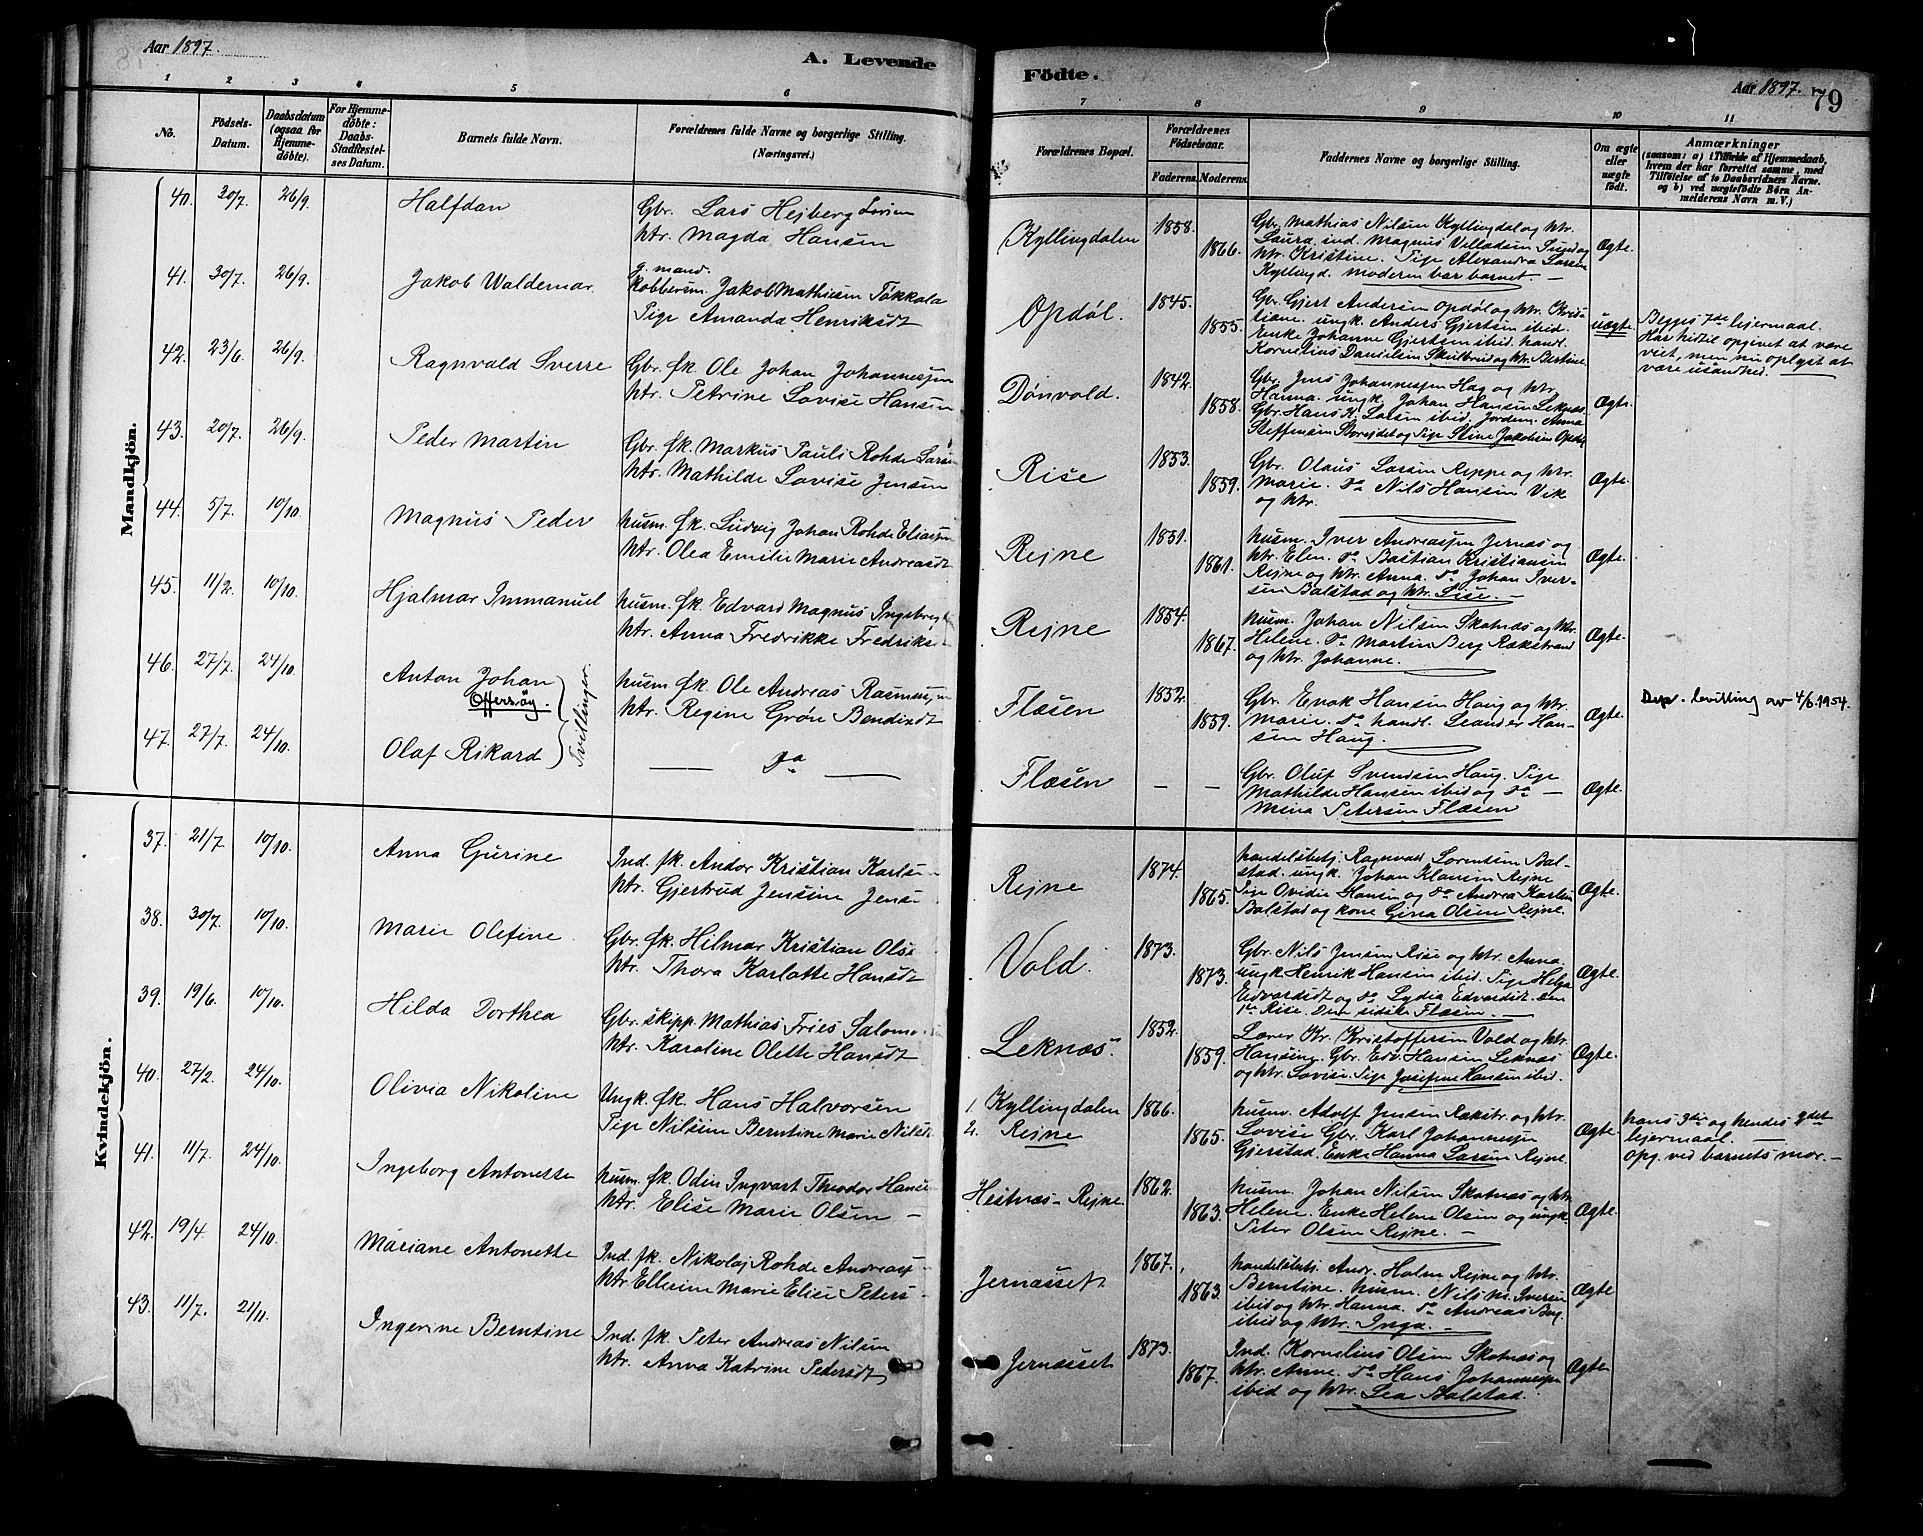 Aar 1897.
A. Levende
Födte.
Aar 1897. 79
1 2 3 4 5 6
7 8 9 10 11
No.
Födsels-
Datum.
Daabsdatum
(ogsaa for
Hjemme-
döbte).
For Hjemme-
döbte:
Daabs-
Stadfæstel-
ses Datum.
Barnets fulde Navn.
Forældrenes fulde Navne og borgerlige Stilling.
(Næringsvei.)
Forældrenes Bopæl.
Forældrenes
Födselsaar.
Faderens. Moderens.
Faddernes Navne og borgerlige Stilling.
Om ægte
eller
uægte
födt.
Anmærkninger
(saasom: a) i Tilfælde af Hjemmedaab,
hvem der har forrettet samme, med
Tilföielse af to Daabsvidners Navne.
og b) ved uægtefödte Börn An-
melderens Navn m. V.)
Mandkjön.
40. 30/7. 26/9. Halfdan
Gbr. Lars Hejberg Larsen
Htr. Magda Hansen
Kyllingdalen 1858. 1866.
Gbr. Mathias Nilsen Kyllingdal og Htr.
Laura. ind. Magnus Villadsen Sund og
Htr. Kristine. Pige Alexandra Larsen
Kyllingd. Moderen bar barnet. —
Ægte.
41. 30/7. 26/9. Jakob Waldemar.
g. mand.
Kobbersm. Jakob Mathisen Tokkola
Pige Amanda Henriksdt
Opdøl. 1845. 1855.
Gbr. Gjert Andersen Opdøl og Htr. Chris-
tiane. ungk. Anders Gjertsen ibid.
Enke Johanne Gjertsen ibid. handl.
Kornelius Danielsen Skulbrud og Htr. Bertine.
uægte.
Begges 7de lejermaal.
Har hidtil opgivet at være
viet, men nu oplyst at
være usandhed.
42. 23/6. 26/9. Ragnvald Sverre
Gbr. fk. Ole Johan Johannessen
Htr. Petrine Lovise Hansen
Dønvold. 1842. 1858.
Gbr. Jens Johannessen Hag og Htr.
Hanna. ungk. Johan Hansen Leknæs.
Gbr. Hans K. Larsen ibid. Jordem. Anna
Steffensen Storejdet og Pige Stine Jakobsen Opdøl
Ægte.
43. 20/7. 26/9. Peder Martin
Gbr. fk. Markus Pauli Rohde Larsen
Htr. Mathilde Lovise Jensen
Rise 1853. 1859.
Gbr. Olaus Larsen Reppe og Htr.
Marie. do Nils Hansen Vik
og Htr.
Ægte.
44. 5/7. 10/10. Magnus Peder
husm. fk. Ludvig Johan Rohde Eliassen
Htr. Olea Emilie Marie Andreasdt.
Rejne 1851. 1861.
husm. Iver Andreassen Jernæs og
Htr. Elen. do Bastian Kristiansen
Rejne og Htr. Anna. do Johan Iver-
sen Balstad og Htr. Lise. —
Ægte.
45. 11/2. 10/10. Hjalmar Immanuel
husm. fk. Edvard Magnus Ingebrig
Htr. Anna Fredrikke Fredriks
Rejne 1854. 1867.
husm. Johan Nilsen Skotnæs og Htr.
Helene. do Martin Berg Rækstrand
og Htr. Johanne.
Ægte.
46. 27/7. 24/10. Anton Johan
Offersøy.
Tvillinger.
husm. fk. Ole Andreas Rasmussen
Htr. Regine Grøn Bendixdt
Flæsen 1852. 1859.
Gbr. Enok Hansen Haug og Htr.
Marie. do handl. Leander Han-
sen Haug.
Ægte.
Dep. bevilling av 4/6. 1954.
47. 27/7. 24/10. Olaf Rikard
— do —
Flæsen — —
Gbr. Oluf Svendsen Haug. Pige
Mathilde Hansen ibid og do —
Mina Petersen Flæsen
Ægte.
Kvindekjön.
37. 21/7. 10/10. Anna Gurine
Ind. fk. Andor Kristian Karls
Htr. Gjertrud Jensine Jens
Rejne 1874. 1865.
handelsbetj. Ragnvald Lorentsen Bal-
stad. ungk. Johan Klausen Rejne
Pige Ovidie Hansen og do Andrea Karlsen
Balstad og kone Gina Olsen Rejne.
Ægte.
38. 30/7. 10/10. Marie Olefine
Gbr. fk. Hilmar Kristian Ols
Htr. Thora Karlotte Hansdt
Vold. 1873. 1873.
Gbr. Nils Jensen Rise og Htr. Anna.
ungk. Henrik Hansen ibid. Pige Helga
Edvardsdt og do Lydia Edvardsdt. den
1ste Rise. Den sidste Flæsen. —
Ægte.
39. 19/6. 10/10. Hilda Dorthea
Gbr. skipp. Mathias Fries Salomo
Htr. Karoline Olette Hansdt
Leknæs. 1852. 1859.
Lærer Kr. Kristoffersen Vold og Htr.
Hansine. Gbr. Edv. Hansen Leknæs
og Htr. Lovise. Pige Josefine Hansen ibid.
Ægte.
40. 27/2. 24/10. Olivia Nikoline
Ungk. fk. Hans Halvorsen
Pige Nilsine Berntine Marie Nils
1. Kyllingdalen
2. Rejne
1866. 1865.
husm. Adolf Jensen Rækstr. og Htr.
Lovise Gbr. Karl Johannessen
Gjerstad. Enke Hanna Larsen Rejne
Ægte.
hans 3die og hendes 2det
lejermaal. —
opg. ved barnets mor. —
41. 11/7. 24/10. Ingeborg Antonette
husm. fk. Odin Ingvart Theodor Hanse
Htr. Elise Marie Olsen —
Hestnæs - Rejne 1862. 1863.
husm. Johan Nilsen Skotnæs og Htr.
Helene. Enke Helene Olsen og ungk.
Peter Olsen Rejne. —
Ægte.
42. 19/4. 24/10. Mariane Antonette
Ind. fk. Nikolaj Rohde Andreas
Htr. Ellerine Marie Elise Peters
Jernæsset 1867. 1863.
handelsbetj. Andr. Holm Rejne og Htr.
Berntine. husm. Nils M. Iversen
ibid og Htr. Hanna. do Andreas Berg
ibid og Htr. Inga. —
Ægte
43. 11/7. 21/11. Ingerine Berntine
Ind. fk. Peter Andreas Nilsen
Htr. Anna Katrine Pedersdt
Jernæsset 1873. 1867.
Ind. Kornelius Olsen Skotnæs og
Htr. Anne. do Hans Johannessen
ibid og Htr. Lea Balstad.
Ægte